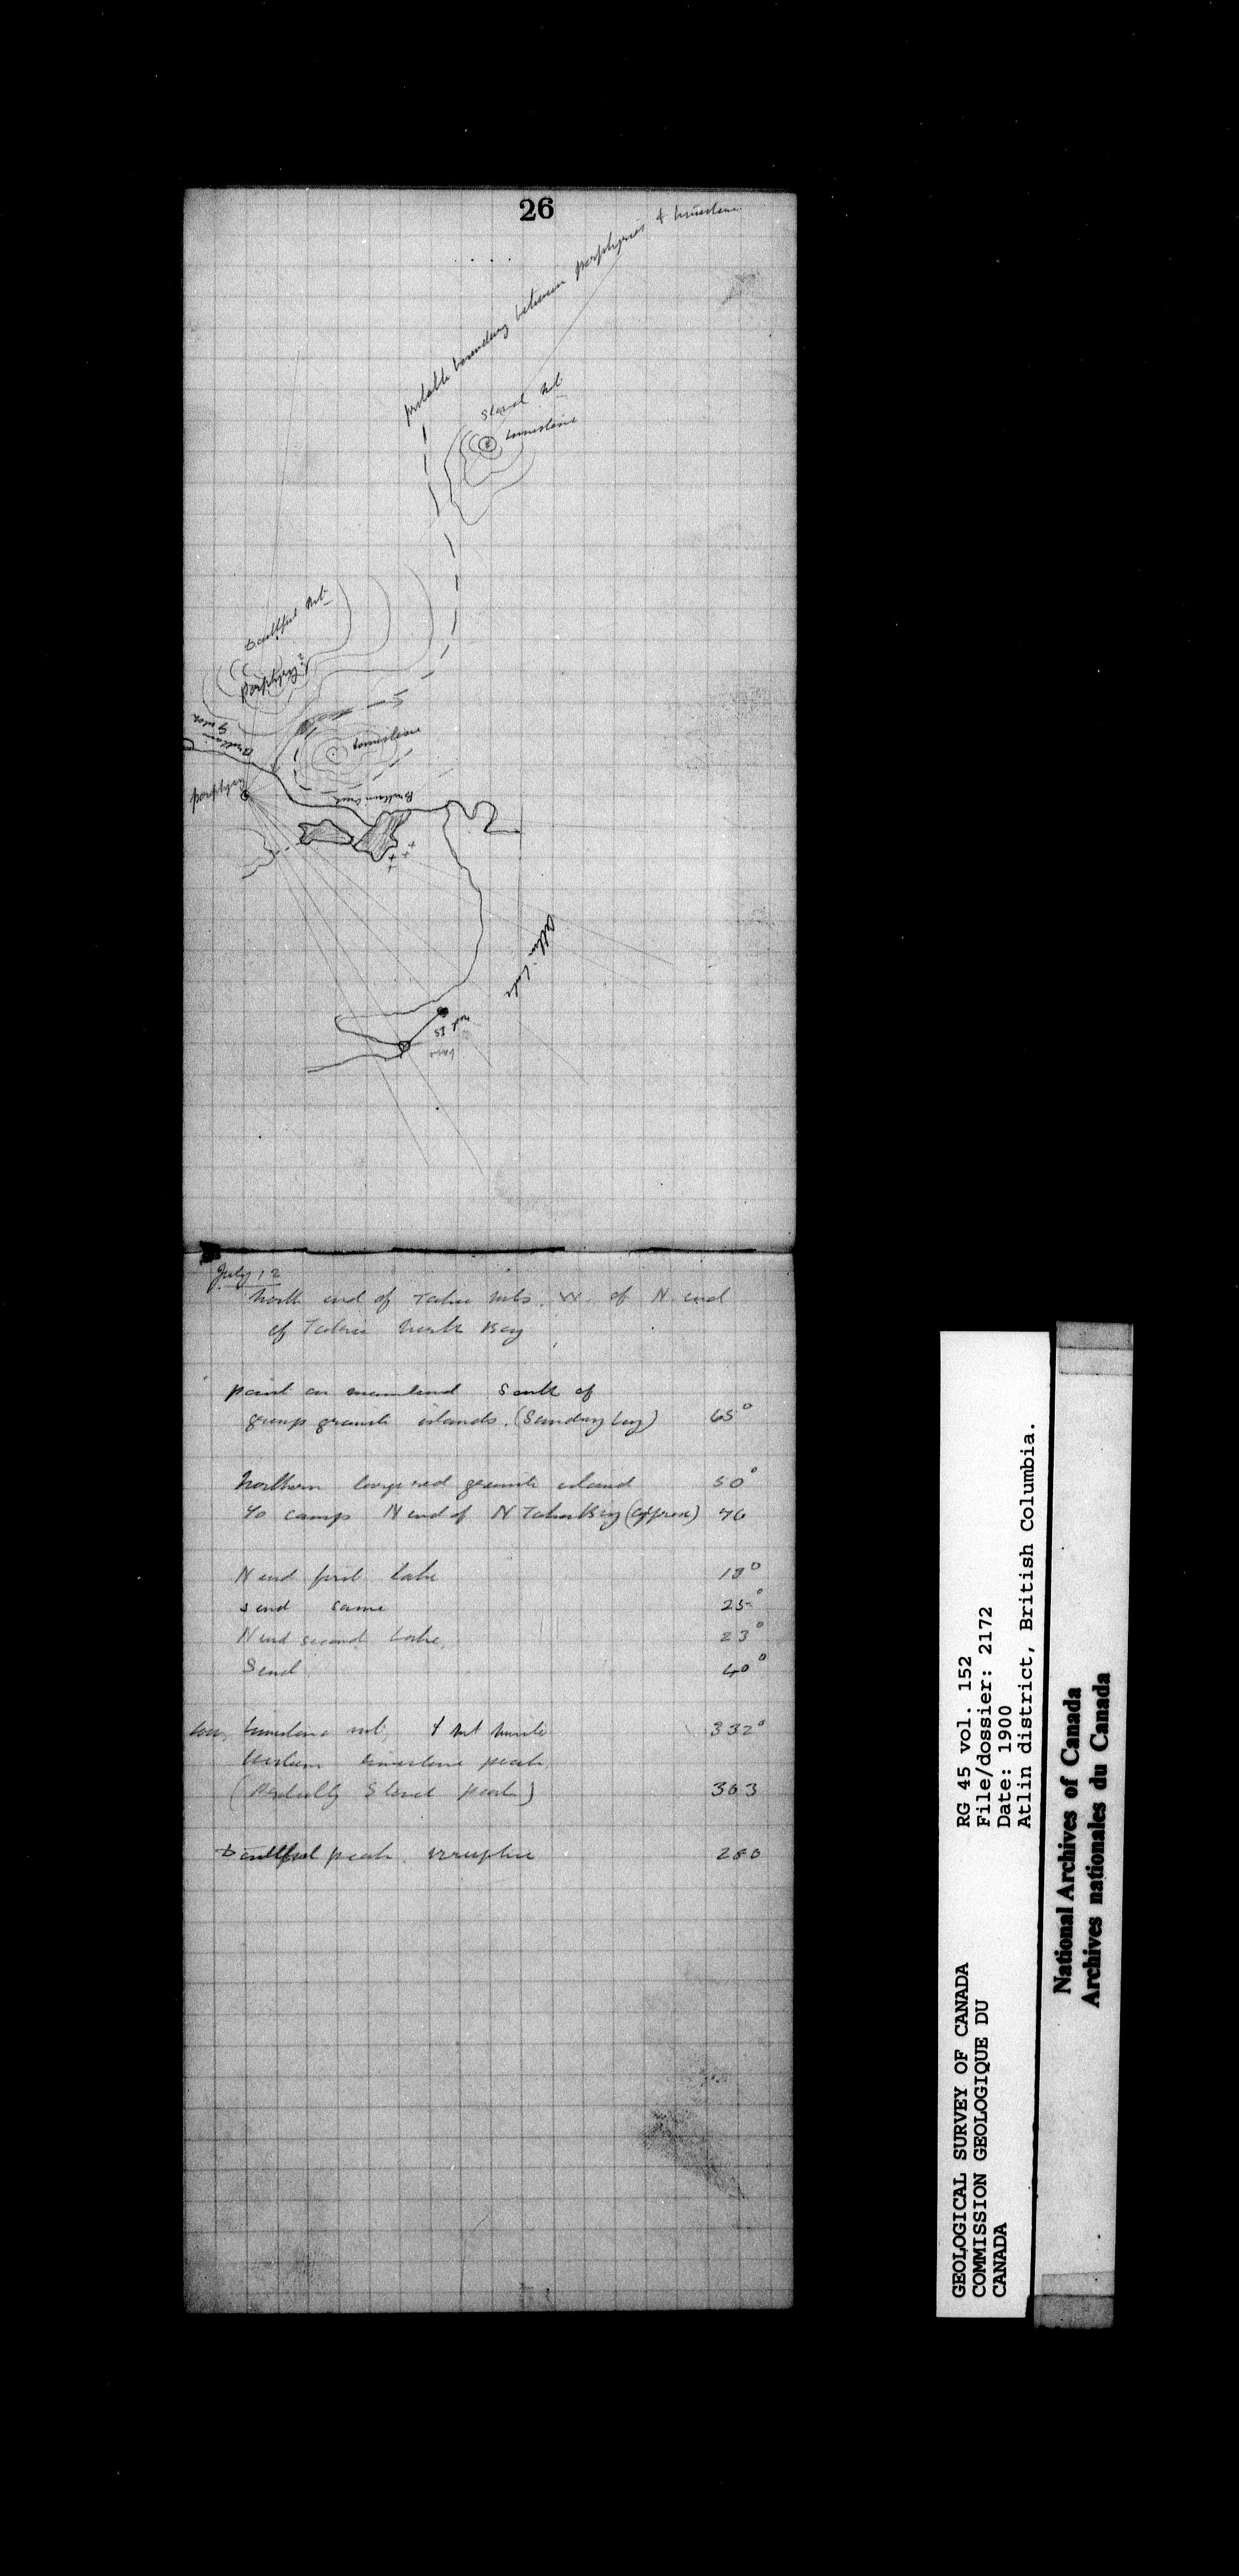 26
probable boundary between porphyries & limestone
Sland Mt.
Limestone
Doubtful Mt.
porphyry?
Limestone
porphyry
Atlin Lake
July 12
North end of Taku Mts. W. of N. end
of Taku North Bay
point on mainland South of
group granite islands. (Sunday bay) 65°
Northern large red granite island 50°
To camp N end of N Taku Bay (approx) 76
N end first Lake 19°
S end same 25°
N end second Lake 23°
S end 40°
Low, Limestone mt, 332°
Western limestone peak
(Probably Sland peak) 303
Doubtful peak irruptive 280
RG 45 vol. 152
File/dossier: 2172
Date: 1900
Atlin district, British Columbia.
GEOLOGICAL SURVEY OF CANADA
COMMISSION GEOLOGIQUE DU
CANADA
National Archives of Canada
Archives nationales du Canada